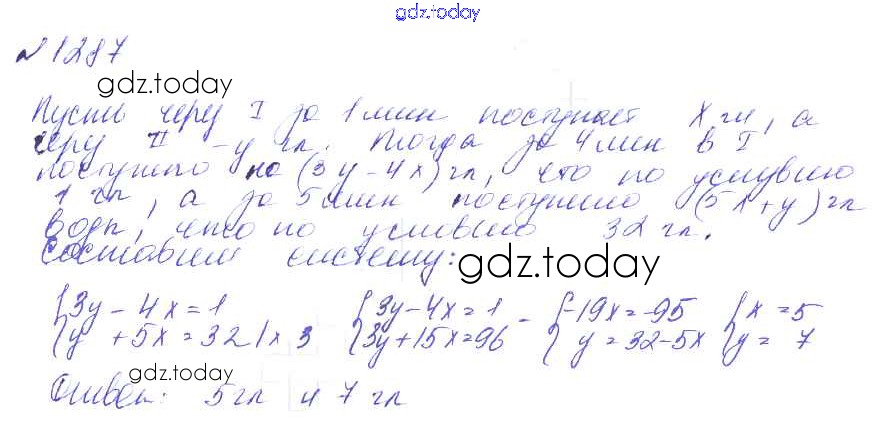 gdz.today
№1287
gdz.today
Пусть через I за 1 мин поступает x гл, а
через II - y гл. Тогда за 4 мин в I
поступило на (3y - 4x) гл, что по условию
1 гл, а за 5 мин поступило (5x + y) гл
воды, что по условию 32 гл.
Составим систему:
gdz.today
{3y - 4x = 1 {3y - 4x = 1 - {-19x = -95 {x = 5
{y + 5x = 32 | x 3 {3y + 15x = 96 {y = 32 - 5x {y = 7
gdz.today
Ответ: 5 гл и 7 гл